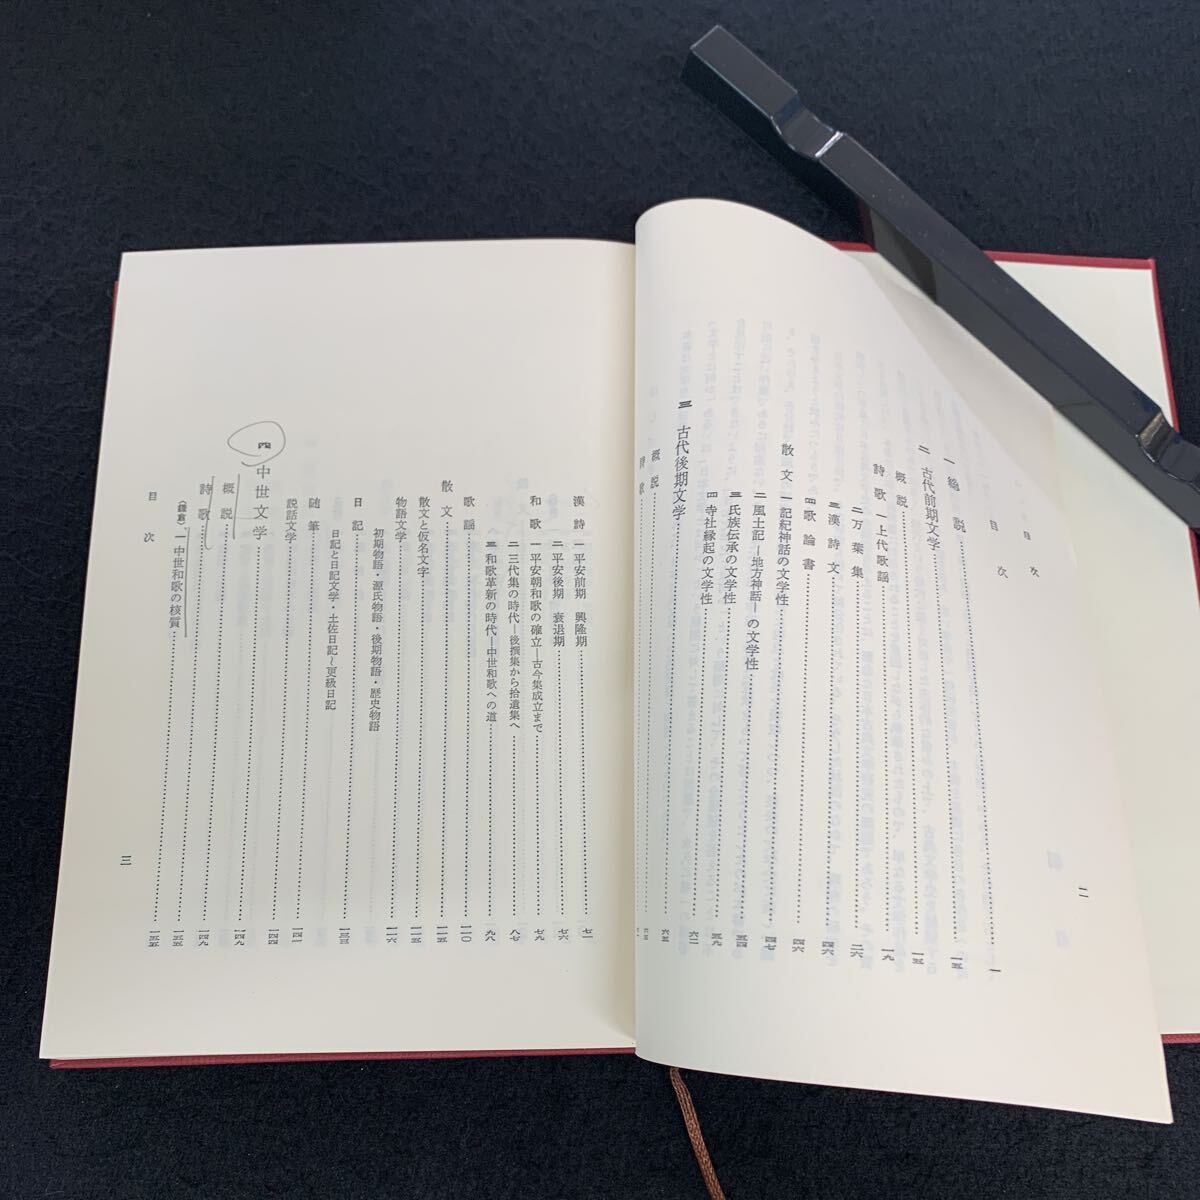 目次
目次
一　総説……一
二　古代前期文学……一五
概説……一五
詩歌　一　上代歌謡……一九
二　万葉集……二六
三　漢詩文……四六
四　歌論書……四六
散文　一　記紀神話の文学性……四七
二　風土記―地方神話―の文学性……五四
三　氏族伝承の文学性……五九
四　寺社縁起の文学性……六二
三　古代後期文学……六五
概説……六五
詩歌
二
漢詩　一　平安前期　興隆期……七一
二　平安後期　衰退期……七六
和歌　一　平安朝和歌の確立―古今集成立まで……七九
二　三代集の時代―後撰集から拾遺集へ……八七
三　和歌革新の時代―中世和歌への道……九八
歌謡……一一〇
散文……一一五
散文と仮名文字……一一五
物語文学……一一六
初期物語・源氏物語・後期物語・歴史物語
日記……一三三
日記と日記文学・土佐日記〜更級日記
説話文学……一四一
随筆……一四四
四　中世文学……一四九
概説……一四九
詩歌……一五五
〈鎌倉〉一　中世和歌の検質……一五五
目次
三